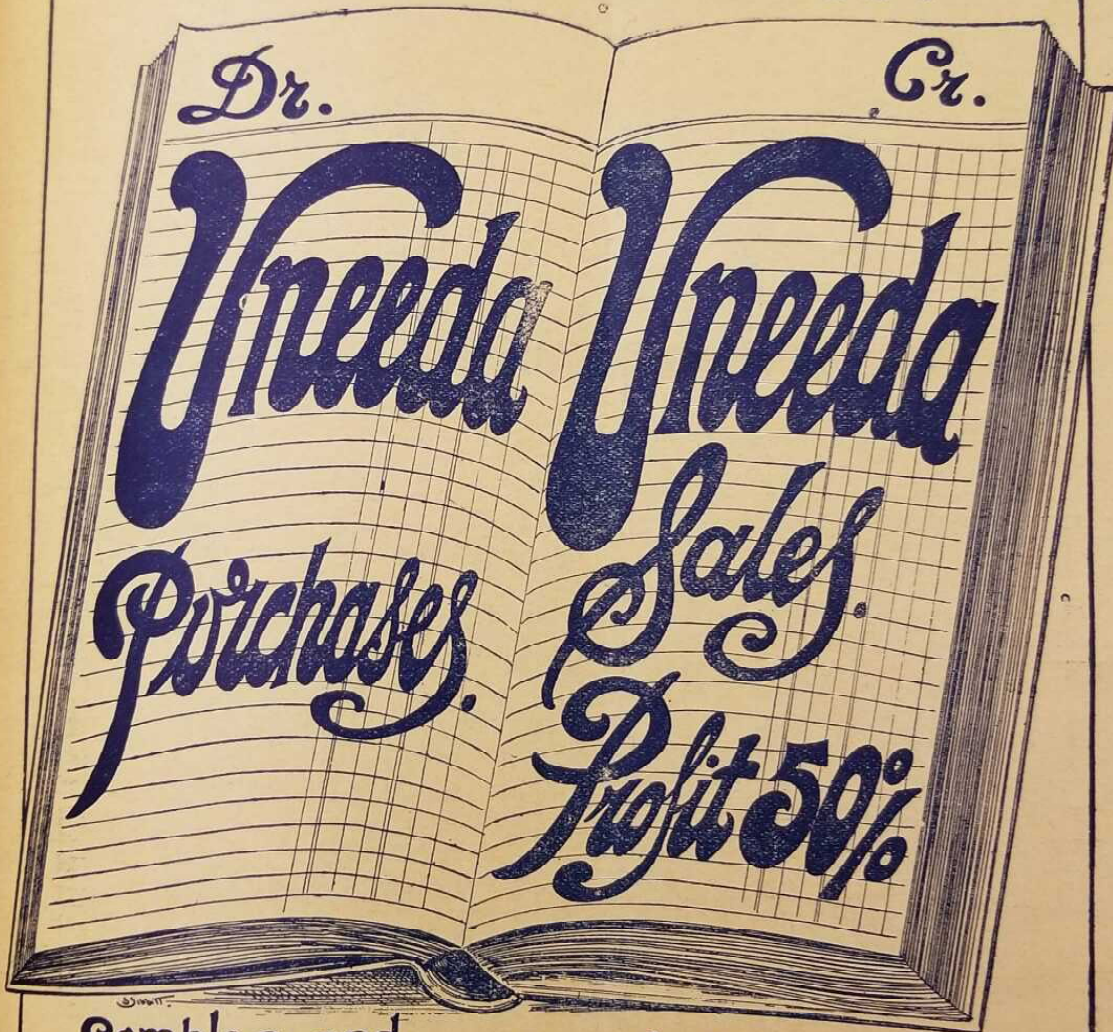 Dr.
Uneeda
Purchases.
Cr.
Uneeda
Sales.
Profit 50%